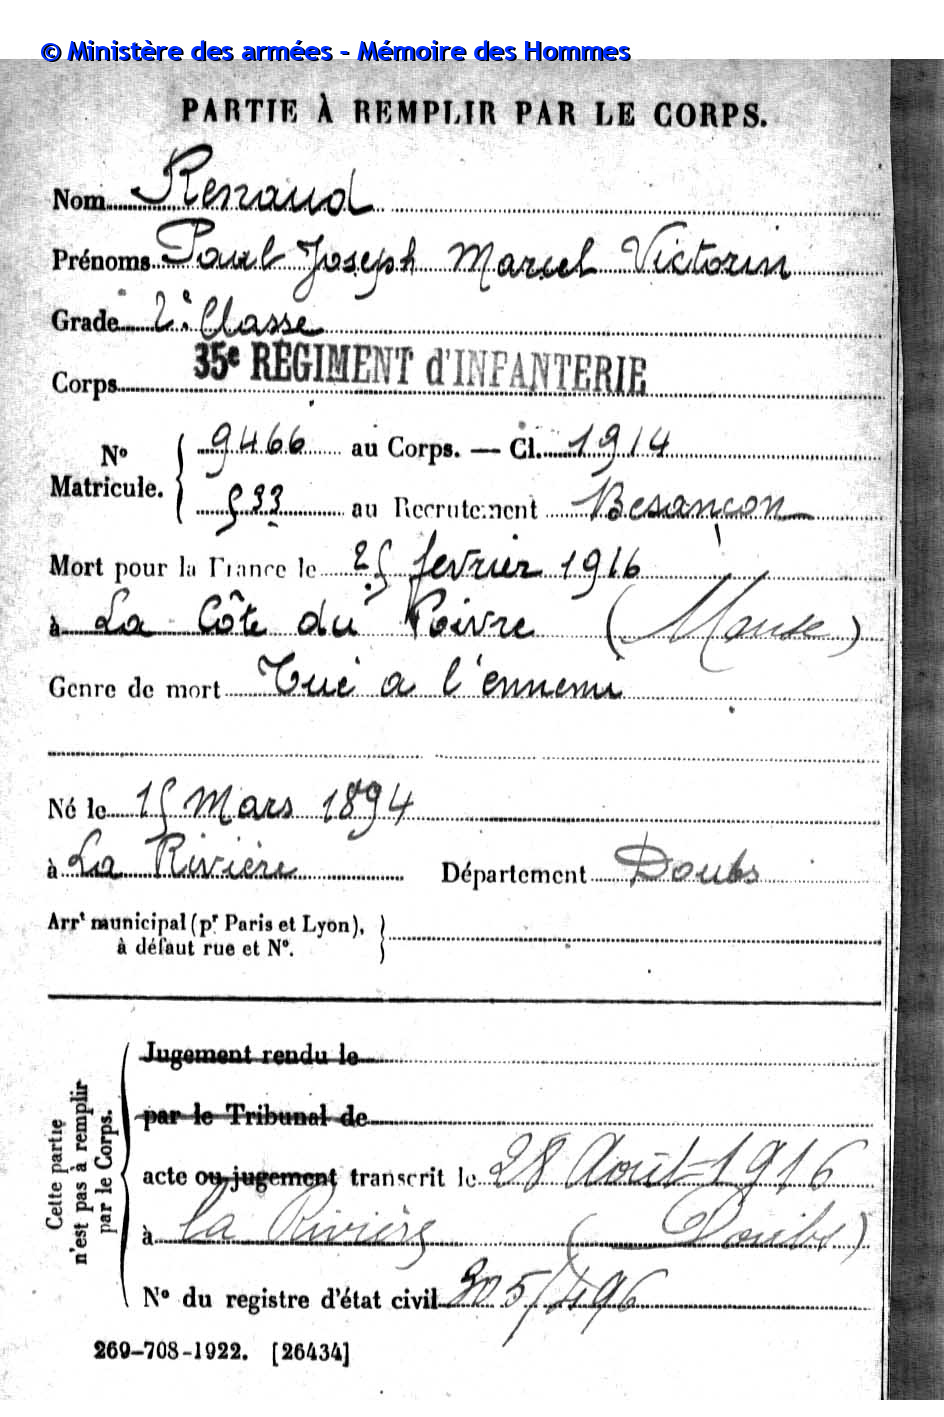 © Ministère des armées - Mémoire des Hommes
PARTIE À REMPLIR PAR LE CORPS.
Nom Renaud
Prénoms Paul Joseph Marcel Victorin
Grade 2e Classe
Corps 35e RÉGIMENT d'INFANTERIE
No Matricule. { 9466 au Corps. — Cl. 1914
533 au Recrutement Besançon
Mort pour la France le 25 fevrier 1916
à La Côte du Poivre (Meuse)
Genre de mort Tué a l'ennemi
Né le 15 Mars 1894
à La Rivière Département Doubs
Arrt municipal (pr Paris et Lyon),
à défaut rue et No.
Cette partie n'est pas à remplir par le Corps.
Jugement rendu le
par le Tribunal de
acte ou jugement transcrit le 28 Août 1916
à la Rivière (Doubs)
No du registre d'état civil 305/496
269-708-1922. [26434]